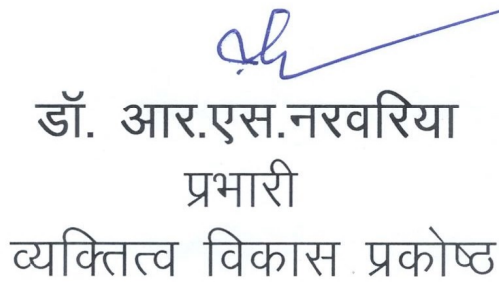 डॉ. आर.एस.नरवरिया
प्रभारी
व्यक्तित्व विकास प्रकोष्ठ